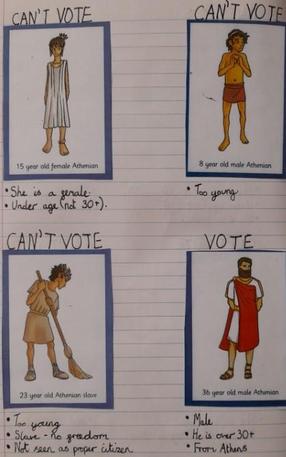 CAN'T VOTE
15 year old female Athenian
• She is a female.
• Under age (not 30+).
CAN'T VOTE
8 year old male Athenian
• Too young
CAN'T VOTE
23 year old Athenian slave
• Too young
• Slave - no freedom
• Not seen as proper citizen
VOTE
36 year old male Athenian
• Male
• He is over 30+
• From Athens